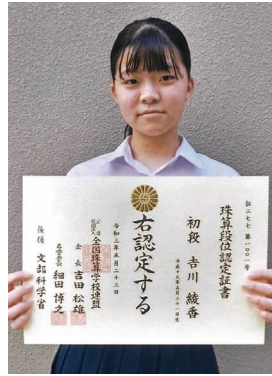 証二七七 第一〇〇一号
珠算段位認定証書
初段 吉川 綾香
平成十九年五月三十一日生
右認定する
令和三年五月二十三日
全国珠算学校連盟
会長 吉田 松雄
名誉会長 細田 博之
後援 文部科学省